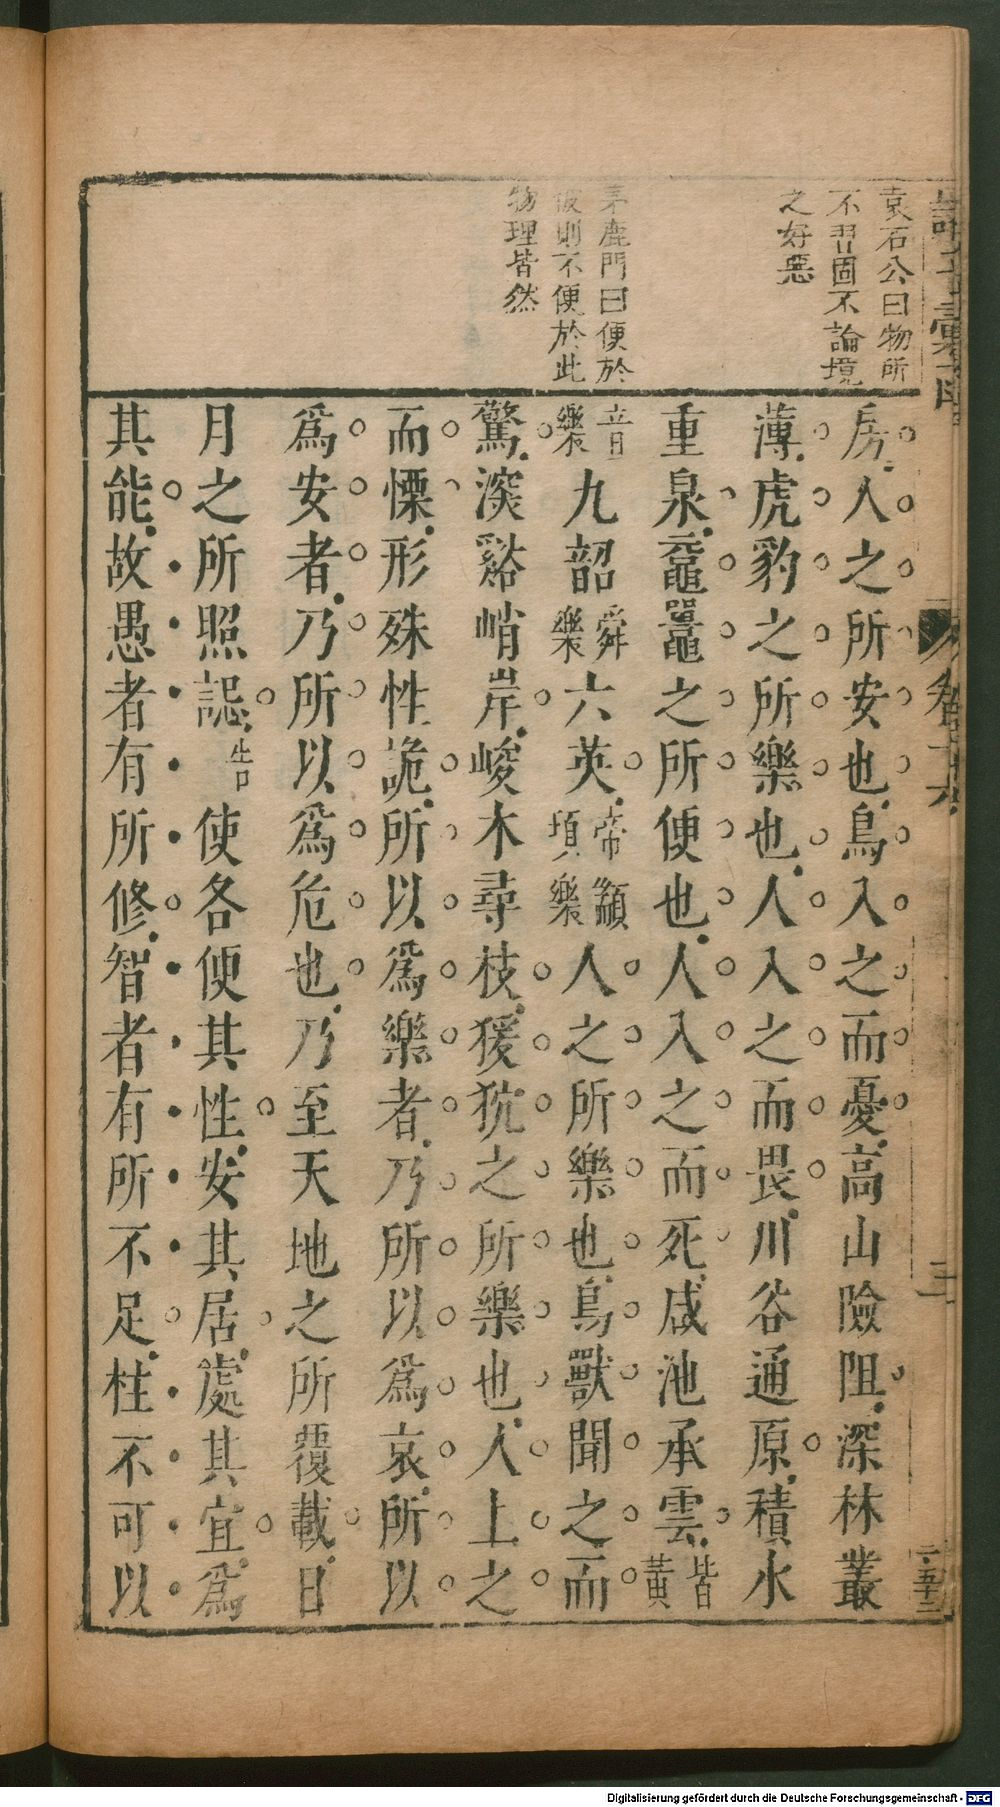 袁石公曰物所
不習固不論境
之好惡
茅鹿門曰便於
彼則不便於此
物理皆然
房人之所安也鳥入之而憂高山險阻深林叢
薄虎豹之所樂也人入之而畏川谷通原積水
重泉黿鼉之所便也人入之而死咸池承雲皆黃
音樂九韶舜樂六英帝顓頊樂人之所樂也鳥獸聞之而
驚深谿峭岸峻木尋枝猨狖之所樂也人上之
而慄形殊性詭所以爲樂者乃所以爲哀所以
爲安者乃所以爲危也乃至天地之所覆載日
月之所照誋告使各便其性安其居處其宜爲
其能故愚者有所修智者有所不足柱不可以
卷十六
二
二五十二
Digitalisierung gefördert durch die Deutsche Forschungsgemeinschaft - DFG